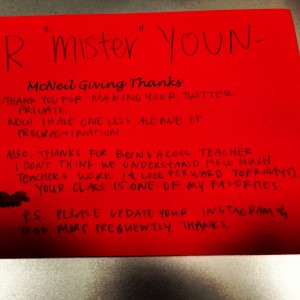 R "mister" YOUN-
McNeil Giving Thanks
THANK YOU FOR MAKING YOUR TWITTER
PRIVATE.
NOW I HAVE ONE LESS AVENUE OF
PROCRASTINATION
ALSO, THANKS FOR BEING A COOL TEACHER
I DON'T THINK WE UNDERSTAND HOW MUCH
TEACHERS WORK (& LOOK FORWARD TO FRIDAYS)
YOUR CLASS IS ONE OF MY FAVORITES.
P.S. PLEASE UPDATE YOUR INSTAGRAM &
BLOG MORE FREQUENTLY. THANKS.